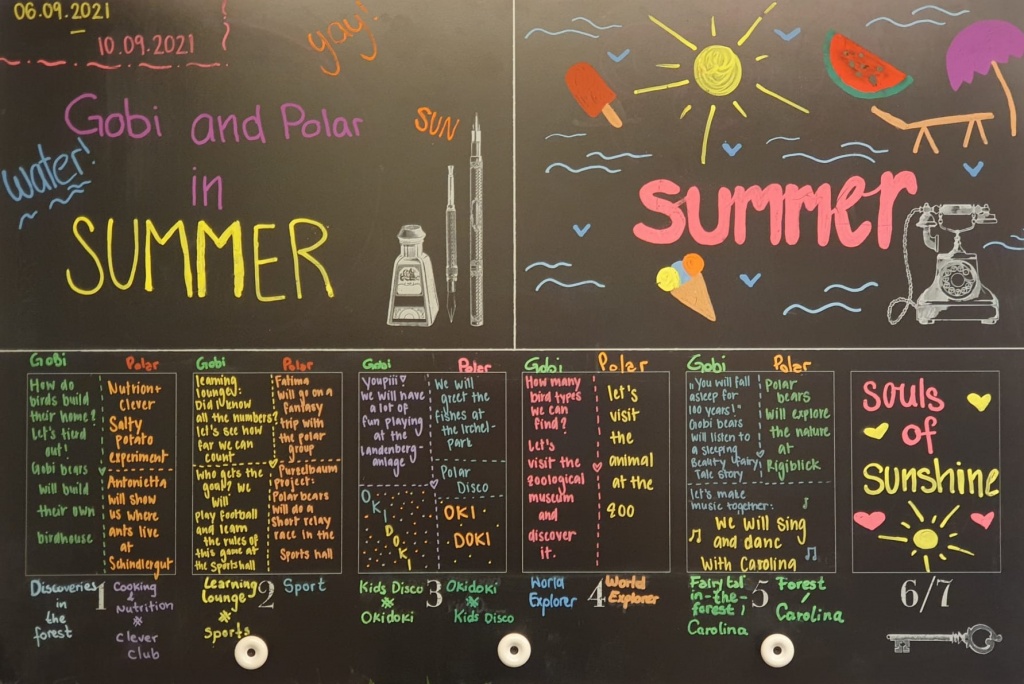 06.09.2021
-
10.09.2021
yay!
Gobi and Polar
in
SUMMER
water!
SUN
summer
Gobi
How do
birds build
their home?
Let's find
out!
Gobi bears
will build
their own
birdhouse
Polar
Nutrion+
Clever
Salty
Potato
experiment
Antonietta
will show
us where
ants live
at
Schindlergut
Discoveries
in
the
forest
1
Cooking
&
Nutrition
*
Clever
Club
Gobi
learning
lounge:
Did u know
all the numbers?
let's see how
far we can
count
who gets the
goal? we
will
play football
and learn
the rules of
this game at
the Sportshall
Polar
Fatima
will go on a
Fantasy
trip with
the polar
group
Purzelbaum
project:
Polar bears
will do a
Short relay
race in the
Sports hall
Learning
Lounge
*
Sports
2
Sport
Gobi
Youpiii
we will have
a lot of
fun playing
at the
Landenberg-
anlage
OKIDOKI
Polar
We will
greet the
fishes at
the Irchel-
Park
Polar
Disco
OKI
DOKI
Kids Disco
*
Okidoki
3
Okidoki
*
Kids Disco
Gobi
How many
bird types
we can
find?
Let's
visit the
zoological
museum
and
discover
it.
Polar
let's
visit
the
animal
at the
zoo
World
Explorer
4
World
Explorer
Gobi
"You will fall
asleep for
100 years!"
Gobi bears
will listen to
a sleeping
Beauty (fairy)
Tale story
Polar
Polar
bears
will explore
the nature
at
Rigiblick
let's make
music together:
We will Sing
and danc
With Carolina
Fairy tal
in-the-
forest /
Carolina
5
Forest
/
Carolina
souls
of
Sunshine
6/7